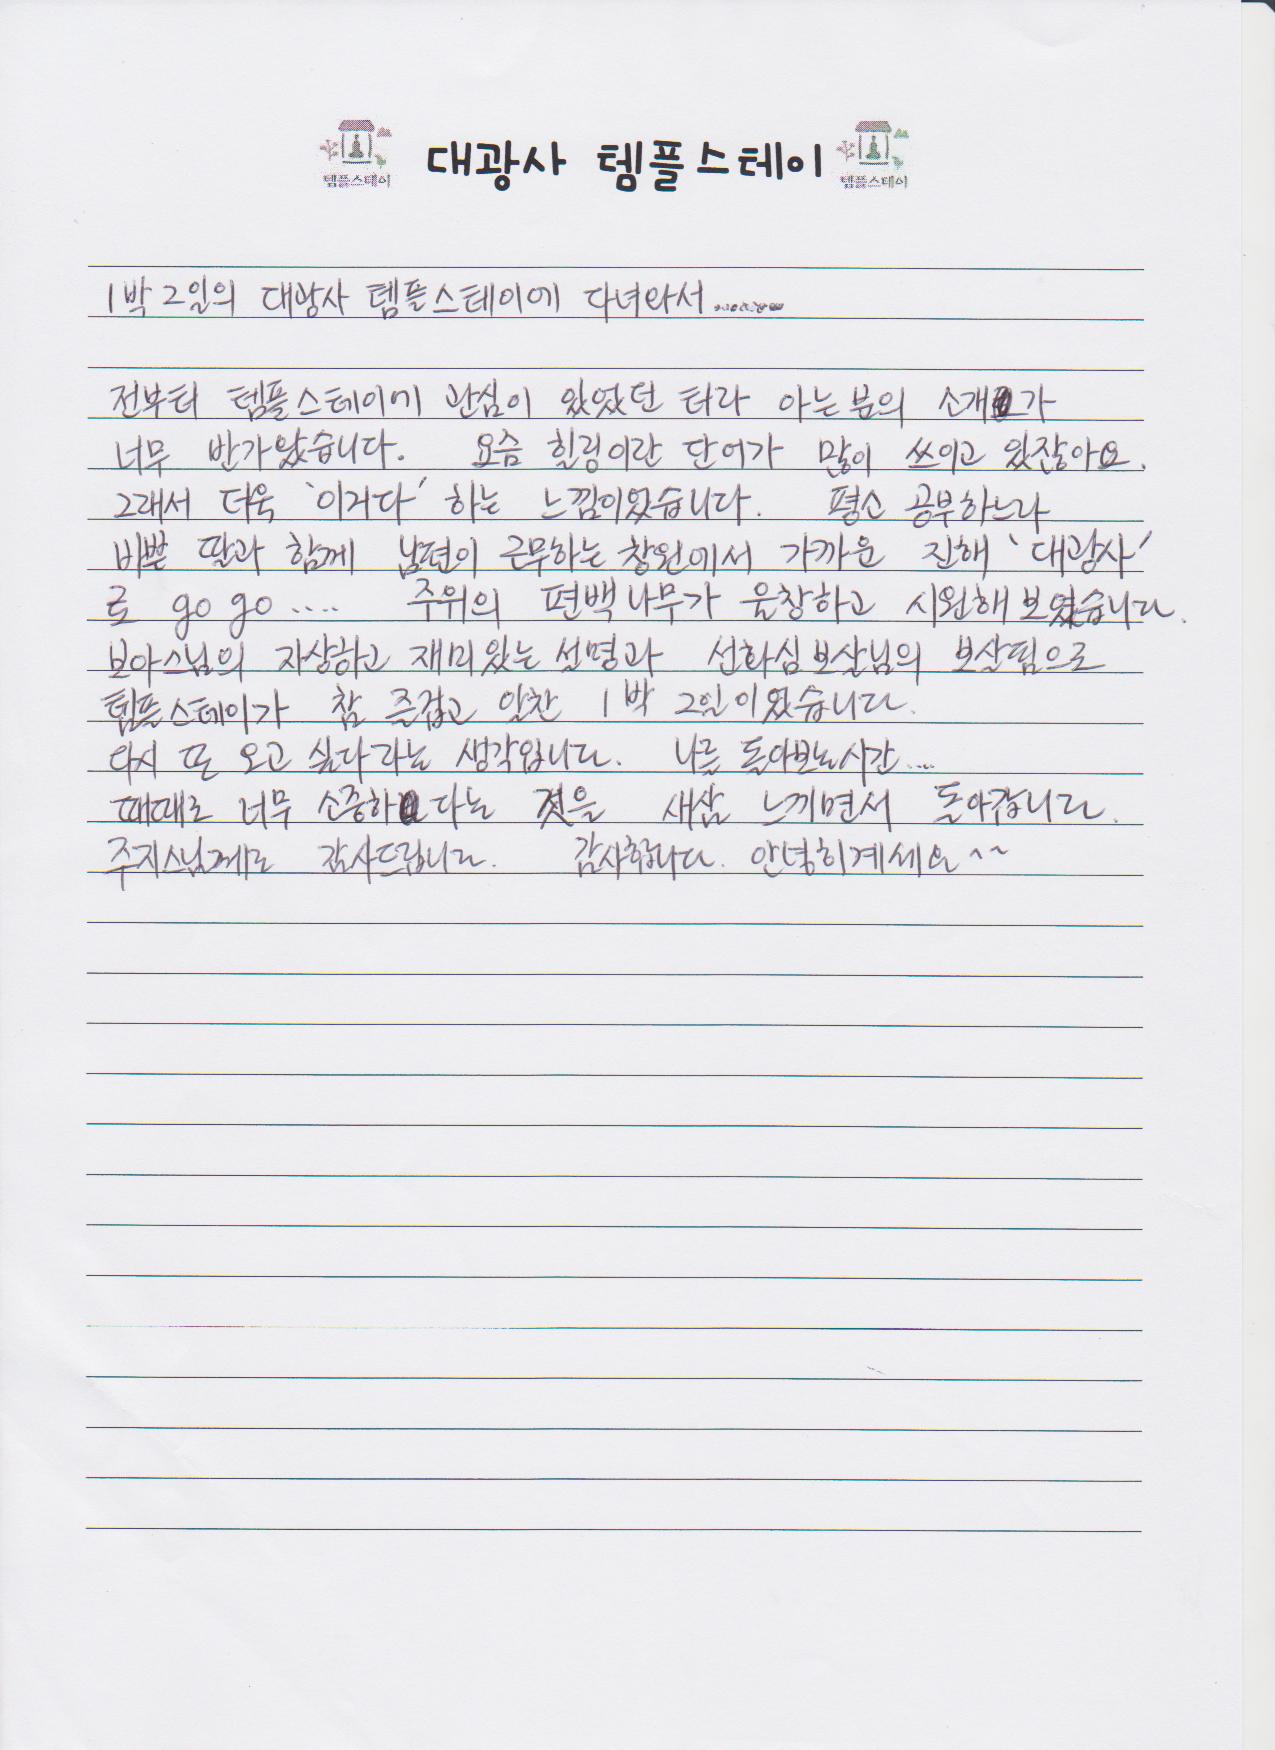 템플스테이 대광사 템플스테이 템플스테이
1박 2일의 대광사 템플스테이에 다녀와서.........
전부터 템플스테이에 관심이 있었던 터라 아는 분의 소개가
너무 반가왔습니다. 요즘 힐링이란 단어가 많이 쓰이고 있잖아요.
그래서 더욱 '이거다' 하는 느낌이었습니다. 평소 공부하느라
바쁜 딸과 함께 남편이 근무하는 창원에서 가까운 진해 '대광사'
로 go go.... 주위의 편백나무가 울창하고 시원해 보였습니다.
보아스님의 자상하고 재미있는 설명과 선화심보살님의 보살핌으로
템플스테이가 참 즐겁고 알찬 1박 2일이었습니다.
다시 또 오고 싶다라는 생각입니다. 나를 돌아보는 시간....
때때로 너무 소중하다는 것을 새삼 느끼면서 돌아갑니다.
주지스님께도 감사드립니다. 감사합니다. 안녕히계세요^~